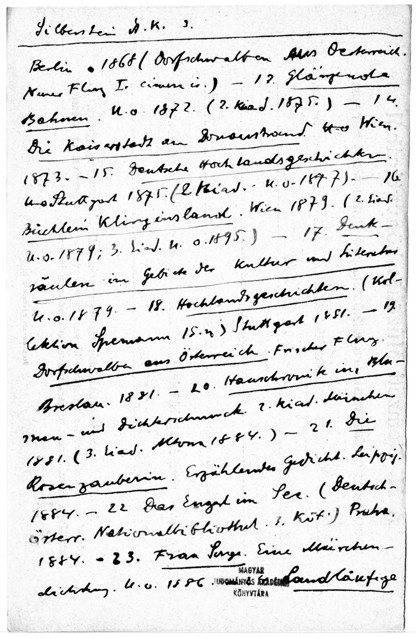 Silberstein A. K. 3.
Berlin. 1868 (Dorfschwalben Aus Oesterreich.
Neuer Flug I. címen is.) — 13. Glänzende
Bahnen. U.o. 1872. (2. kiad. 1875.) — 14.
Die Kaiserstadt am Donaustrand. Wien.
1873. — 15. Deutsche Hochlandsgeschichten.
Stuttgart 1875. (2. kiad. U.o. 1877). — 16.
Büchlein Klinginsland. Wien 1879. (2. kiad.
U.o. 1879; 3. kiad. U.o. 1895.) — 17. Denk-
säulen im Gebiete der Kultur und Literatur
U.o. 1879. — 18. Hochlandsgeschichten. (Kol-
lektion Spemann 15. ) Stuttgart 1881. — 19.
Dorfschwalben aus Österreich. Frischer Flug.
Breslau. 1881. — 20. Hauschronik im Blu-
men- und Dichterschmuck. 2. kiad. München
1881. (3. kiad. Altona 1884.) — 21. Die
Rosenzauberin. Erzählendes Gedicht. Leipzig.
1884. — 22. Das Engel im See. (Deutsch-
österr. Nationalbibliothek. 5. Köt.) Praha.
1884. — 23. Frau Sorge. Eine Märchen-
dichtung. U.o. 1886 Landläufige
MAGYAR
TUDOMÁNYOS AKADÉMIA
KÖNYVTÁRA